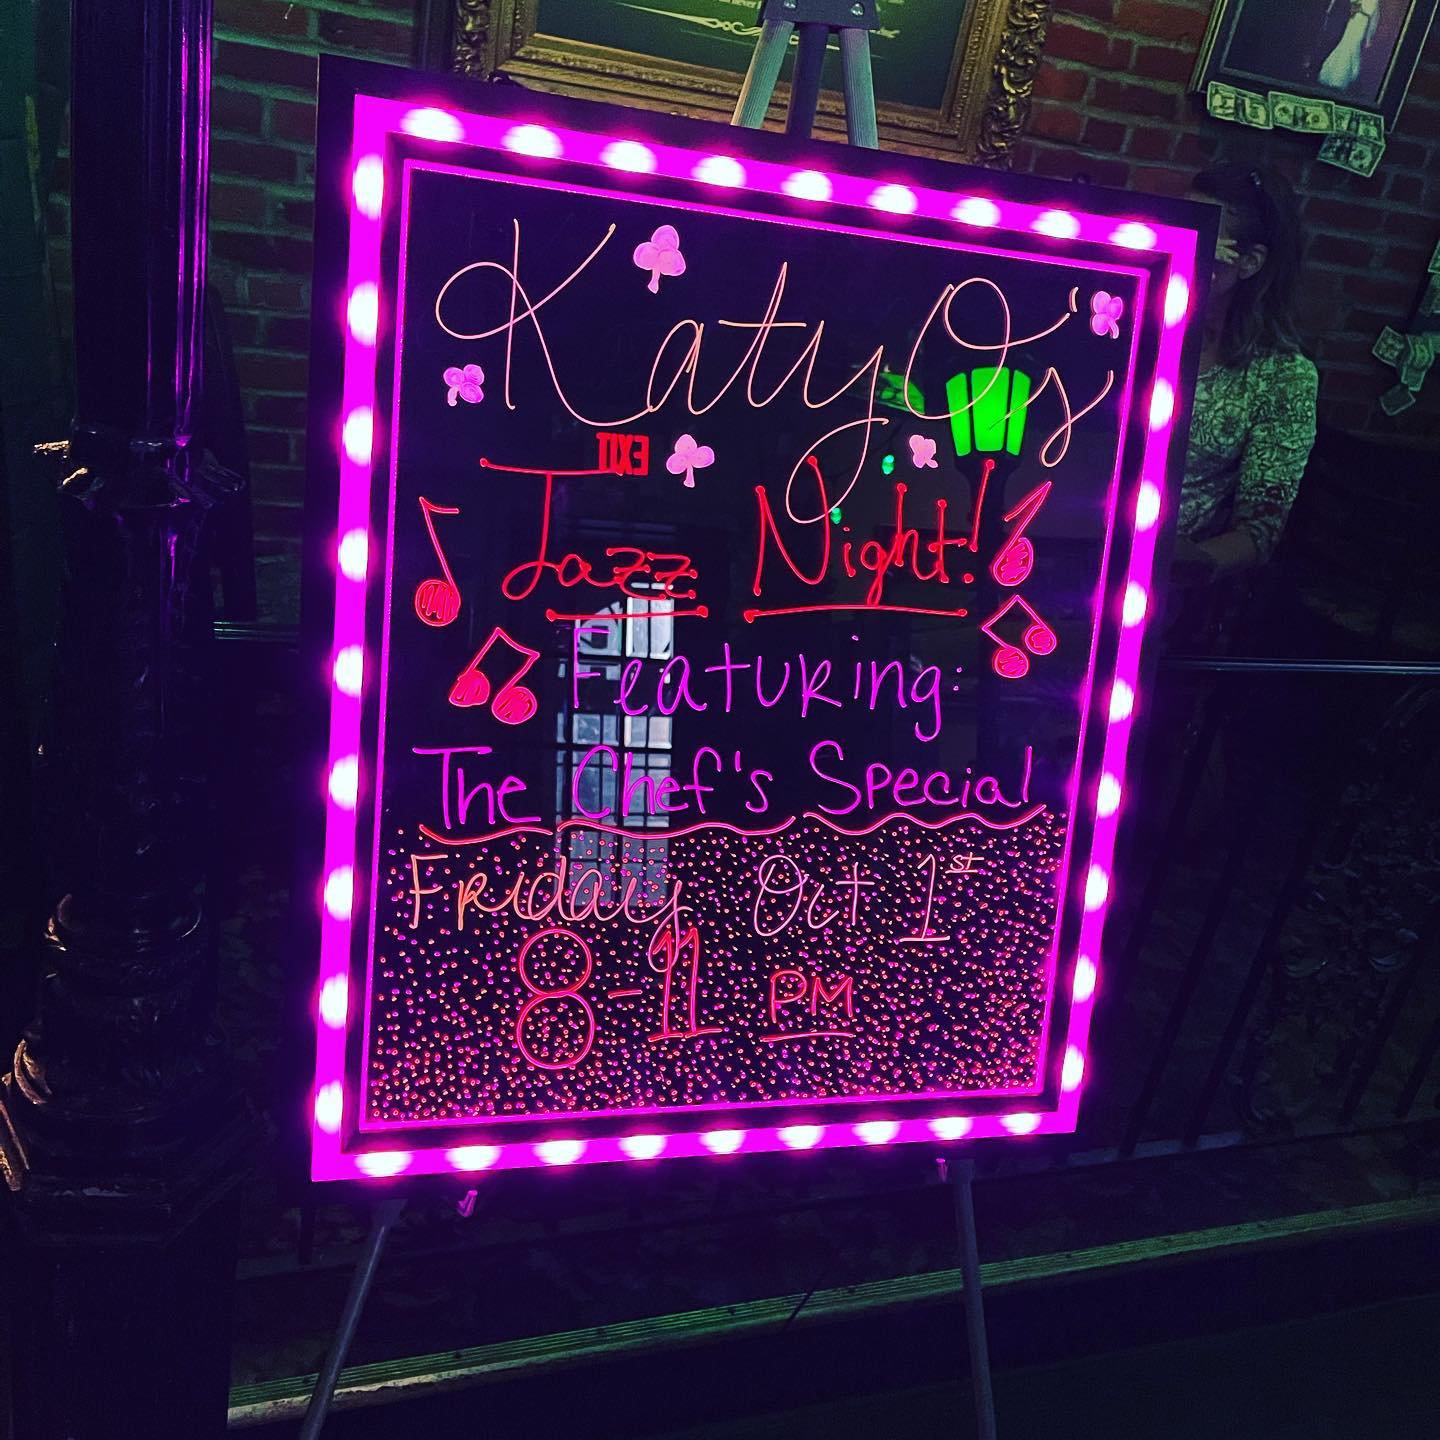 Katy O's
EXIT
Jazz Night!
Featuring:
The Chef's Special
Friday Oct 1st
8-11 PM